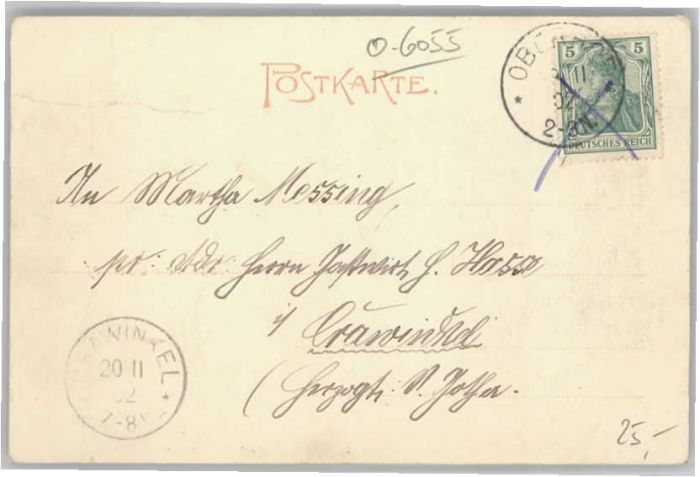 O-6055
POSTKARTE.
OBER
11
02
2-3N.
5 5
DEUTSCHES REICH
An Martha Messing,
pr. Adr. Herrn Gastwirt H. Hassa
i/ Cräwinkel
(Herzogt. S. Gotha.
WINKEL
20 11
02
7-8
25,-